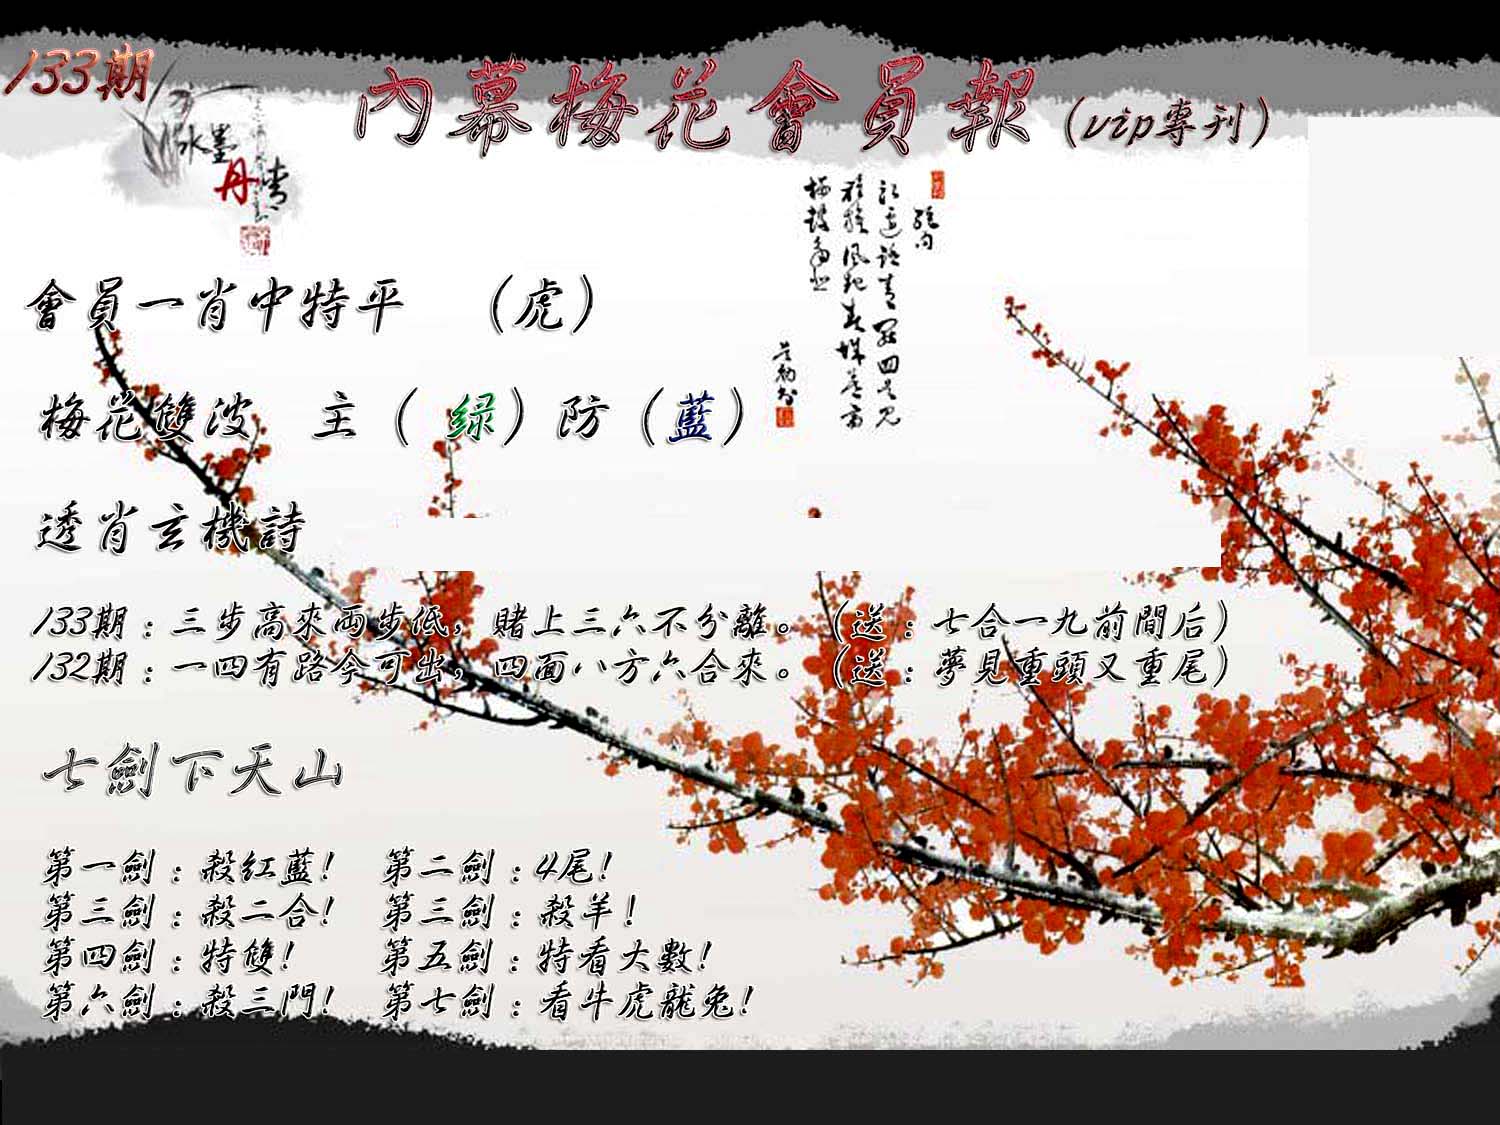 133期
內幕梅花會員報(vip專刊)
水墨
丹青
會員一肖中特平 (虎)
梅花雙波 主( 绿)防(藍)
透肖玄機詩
133期:三步高來兩步低,賭上三六不分離。(送:七合一九前間后)
132期:一四有路今可出,四面八方六合來。(送:夢見重頭又重尾)
七劍下天山
第一劍:殺紅藍! 第二劍:4尾!
第三劍:殺二合! 第三劍:殺羊!
第四劍:特雙! 第五劍:特看大數!
第六劍:殺三門! 第七劍:看牛虎龍兔!